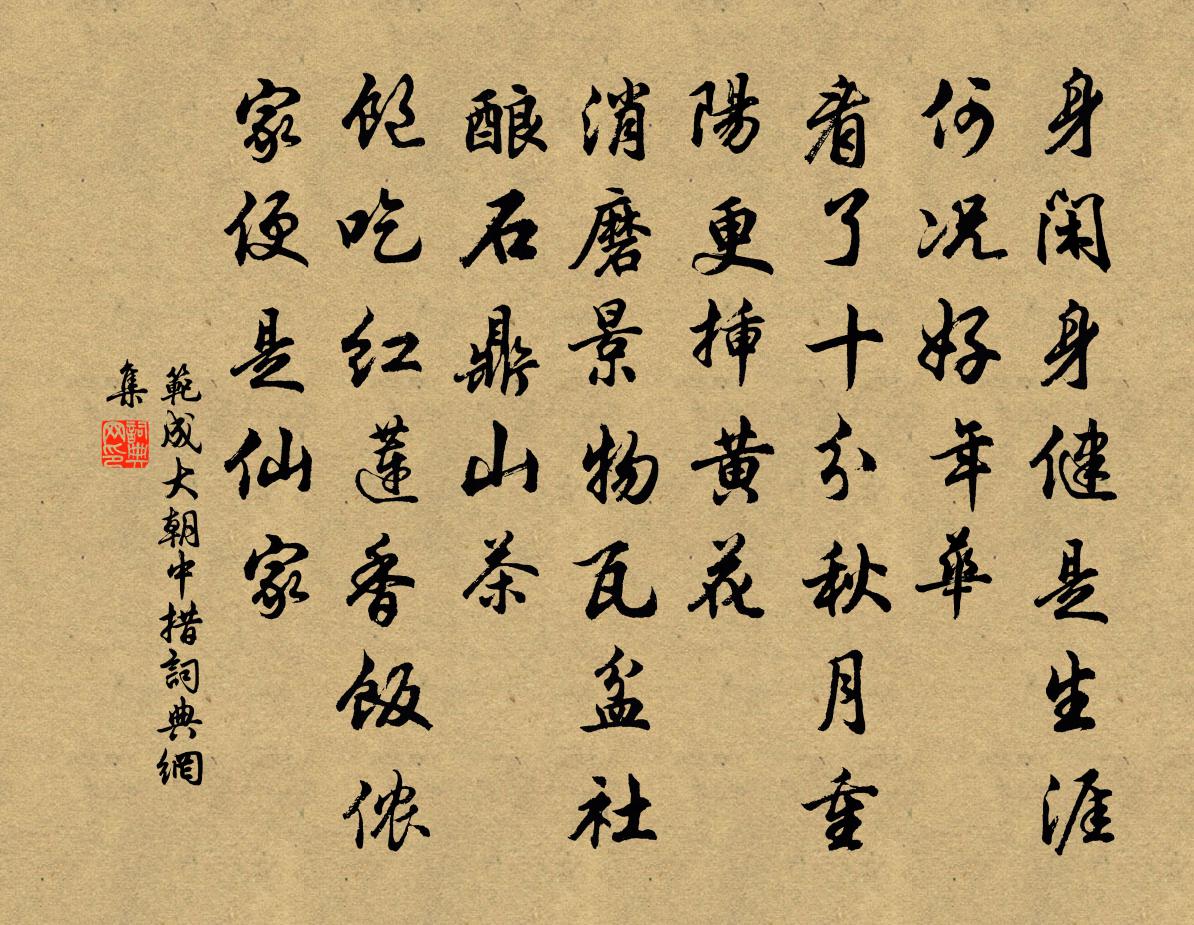 身闲身健是生涯
何况好年華
看了十分秋月重
陽更挿黄花
消磨景物瓦盆社
酿石鼎山茶
饱吃红蓮香飯侬
家便是仙家
範成大朝中措詞典網
集
詞典
网印